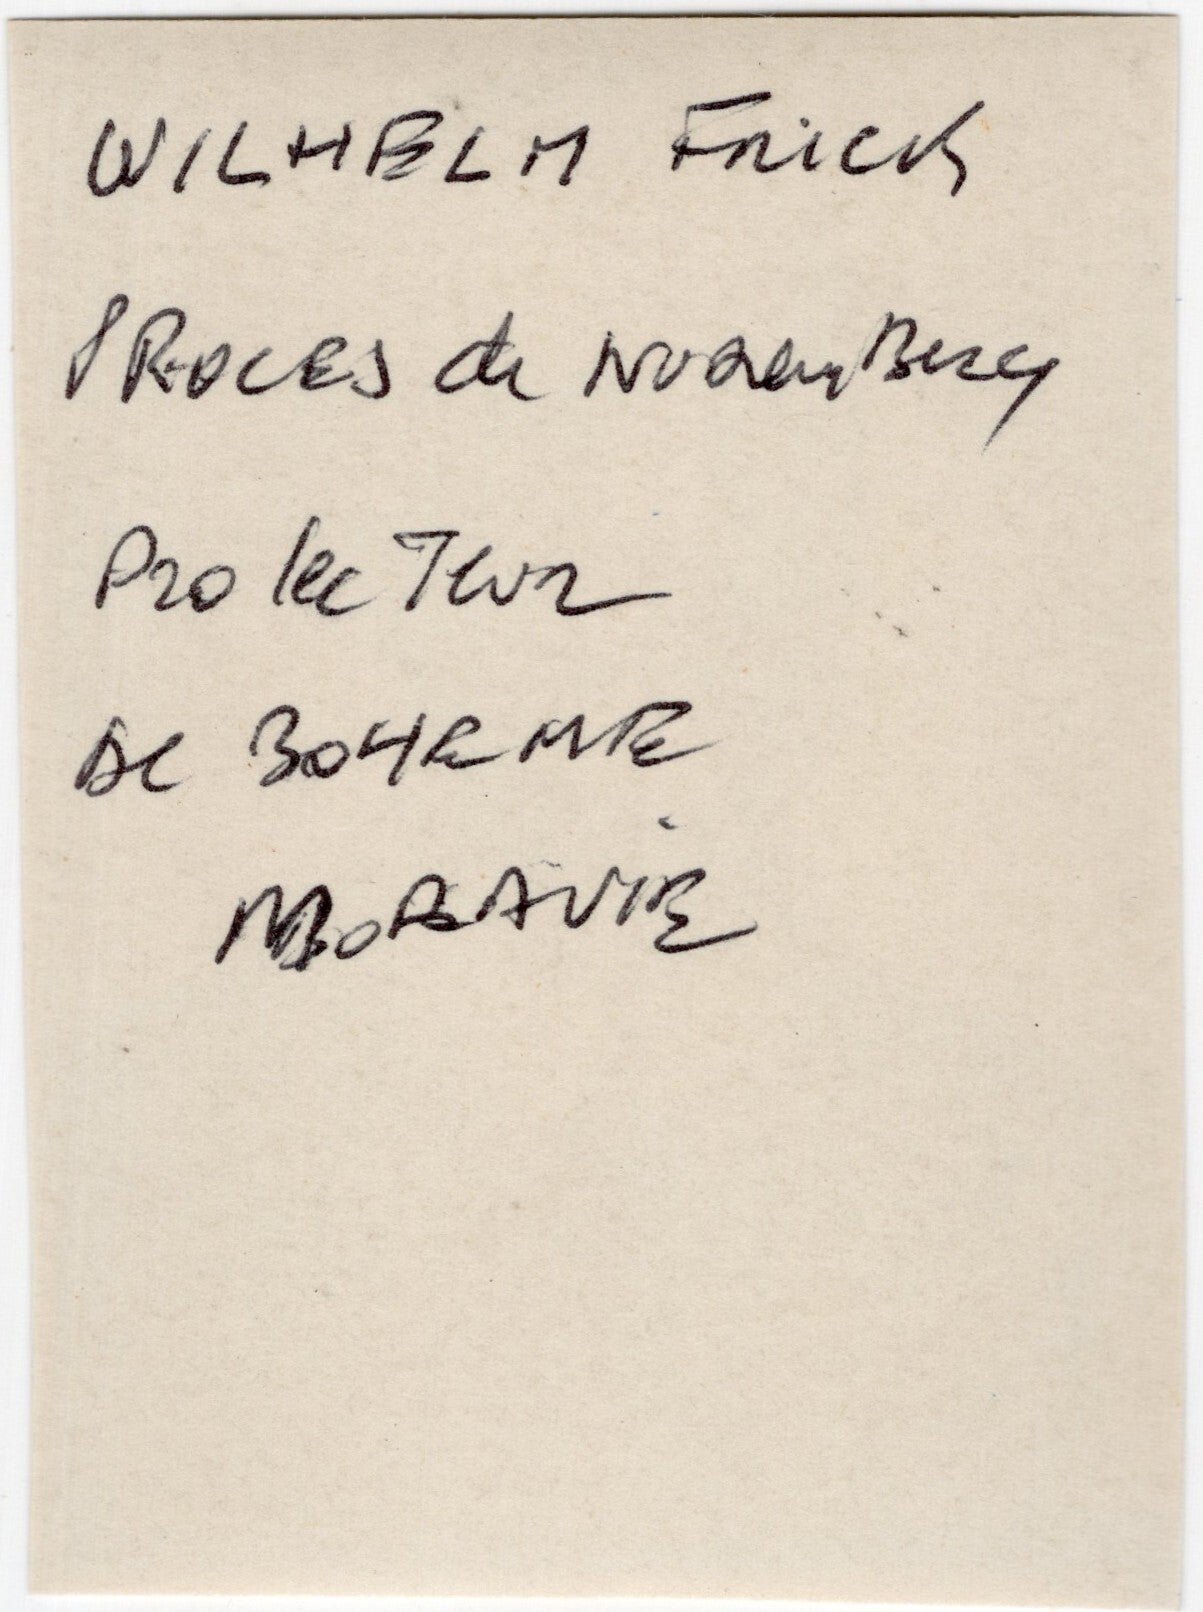 WILHELM FRICK
PROCES de NUREMBERG
Protecteur
DE BOHEME
MORAVIE